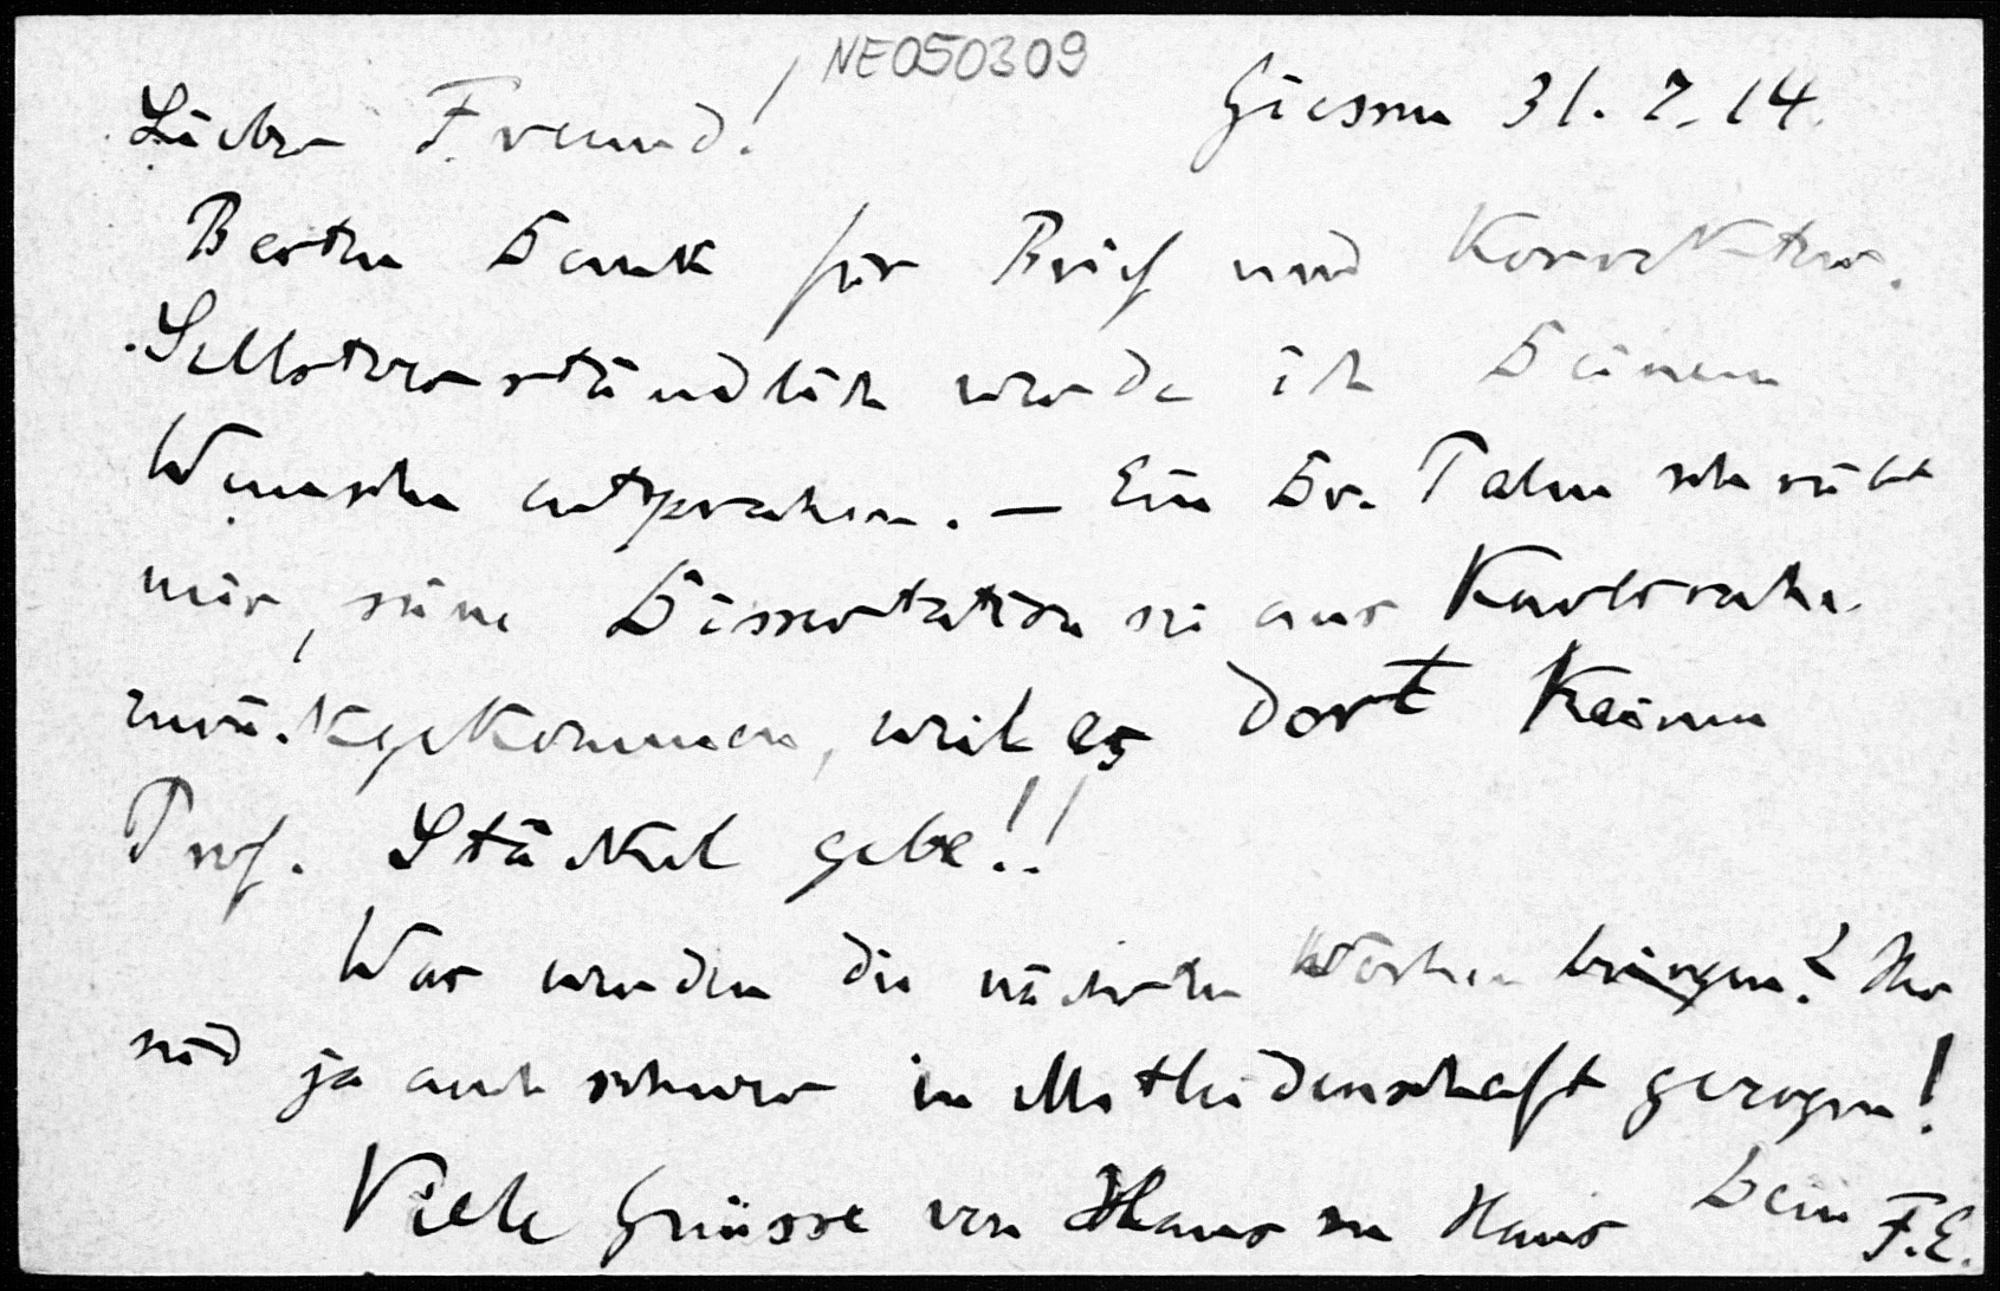 NE050309
Giessen 31. 7. 14.
Lieber Freund!
Besten Dank für Brief und Korrektur.
Selbstverständlich werde ich Deinem
Wunsche entsprechen. — Ein Dr. schreibt
mir, seine Dissertation sei aus Karlsruhe
zurückgekommen, weil es dort keinen
Prof. Stäckel gebe!!
Was werden die nächsten Wochen bringen? Ihr
seid ja auch schwer in Mitleidenschaft gezogen!
Viele Grüsse von Haus zu Haus Dein F.E.